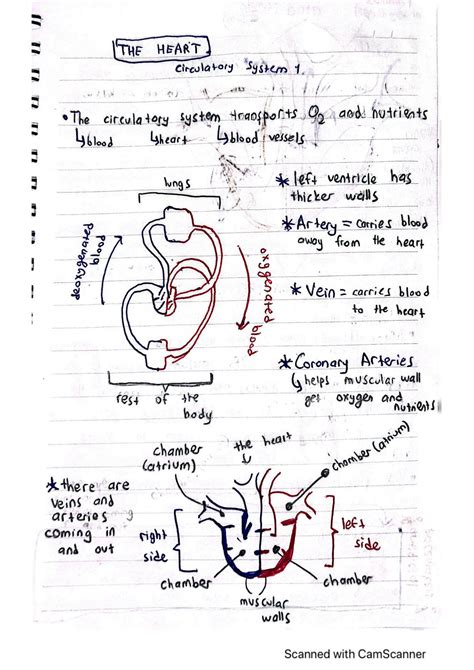 THE HEART
circulatory system 1.
• The circulatory system transports O2 and nutrients
↳blood ↳heart ↳blood vessels
lungs
deoxygenated blood
oxygenated blood
rest of the
body
* left ventricle has
thicker walls
* Artery = carries blood
away from the heart
* Vein = carries blood
to the heart
* Coronary Arteries
↳ helps muscular wall
get oxygen and
nutrients
* there are
veins and
arteries
coming in
and out
chamber
(atrium)
the heart
chamber (atrium)
right
side
left
side
chamber
chamber
muscular
walls
Scanned with CamScanner